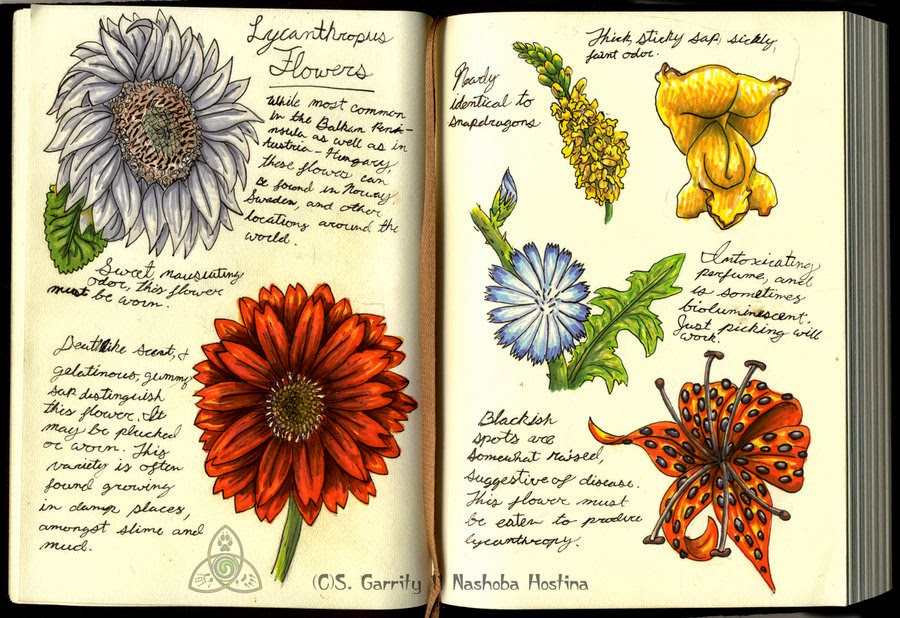 Lycanthropus
Flowers
While most common
in the Balkan Penin-
nsula as well as in
Austria-Hungary,
these flowers can
be found in Norway,
Sweden, and other
locations around the
world.
Sweet nauseating
odor, this flower
must be worn.
Deathlike scent, &
gelatinous, gummy
sap distinguish
this flower. It
may be plucked
or worn. This
variety is often
found growing
in damp places,
amongst slime and
mud.
Nearly
identical to
snapdragons
Thick, sticky sap, sickly,
faint odor.
Intoxicating
perfume, and
is sometimes
bioluminescent.
Just picking will
work.
Blackish
spots are
somewhat raised,
suggestive of disease.
This flower must
be eaten to produce
lycanthropy.
(C)S. Garrity // Nashoba Hostina